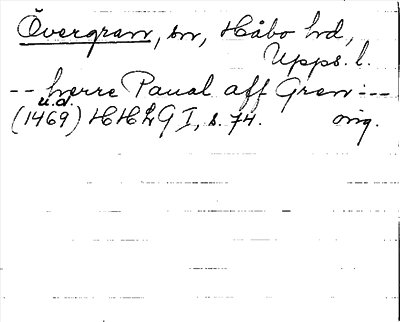 Övergran, sn, Håbo hd,
Upps. l.
-- herre Paual aff Gran --
u.d.
(1469) HH2G I, s. 74. orig.